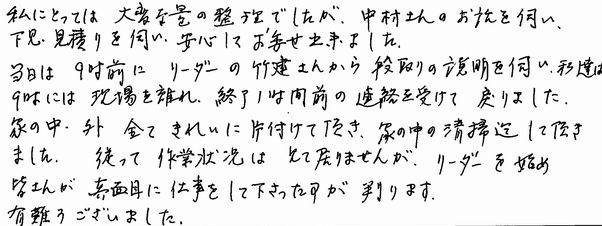 私にとっては 大変な量の整理でしたが、中村さんのお話を伺い、
下見、見積りを伺い、安心してお任せ出来ました。
当日は 9時前に リーダーの竹建さんから 段取りの説明を伺い、私達は
9時には 現場を離れ、終了1時間前の連絡を受けて 戻りました。
家の中・外 全て きれいに片付けて頂き、家の中の清掃迄して頂き
ました。 従って 作業状況は 見て居りませんが、リーダーを始め
皆さんが 真面目に仕事をして下さったのが 判ります。
有難うございました。